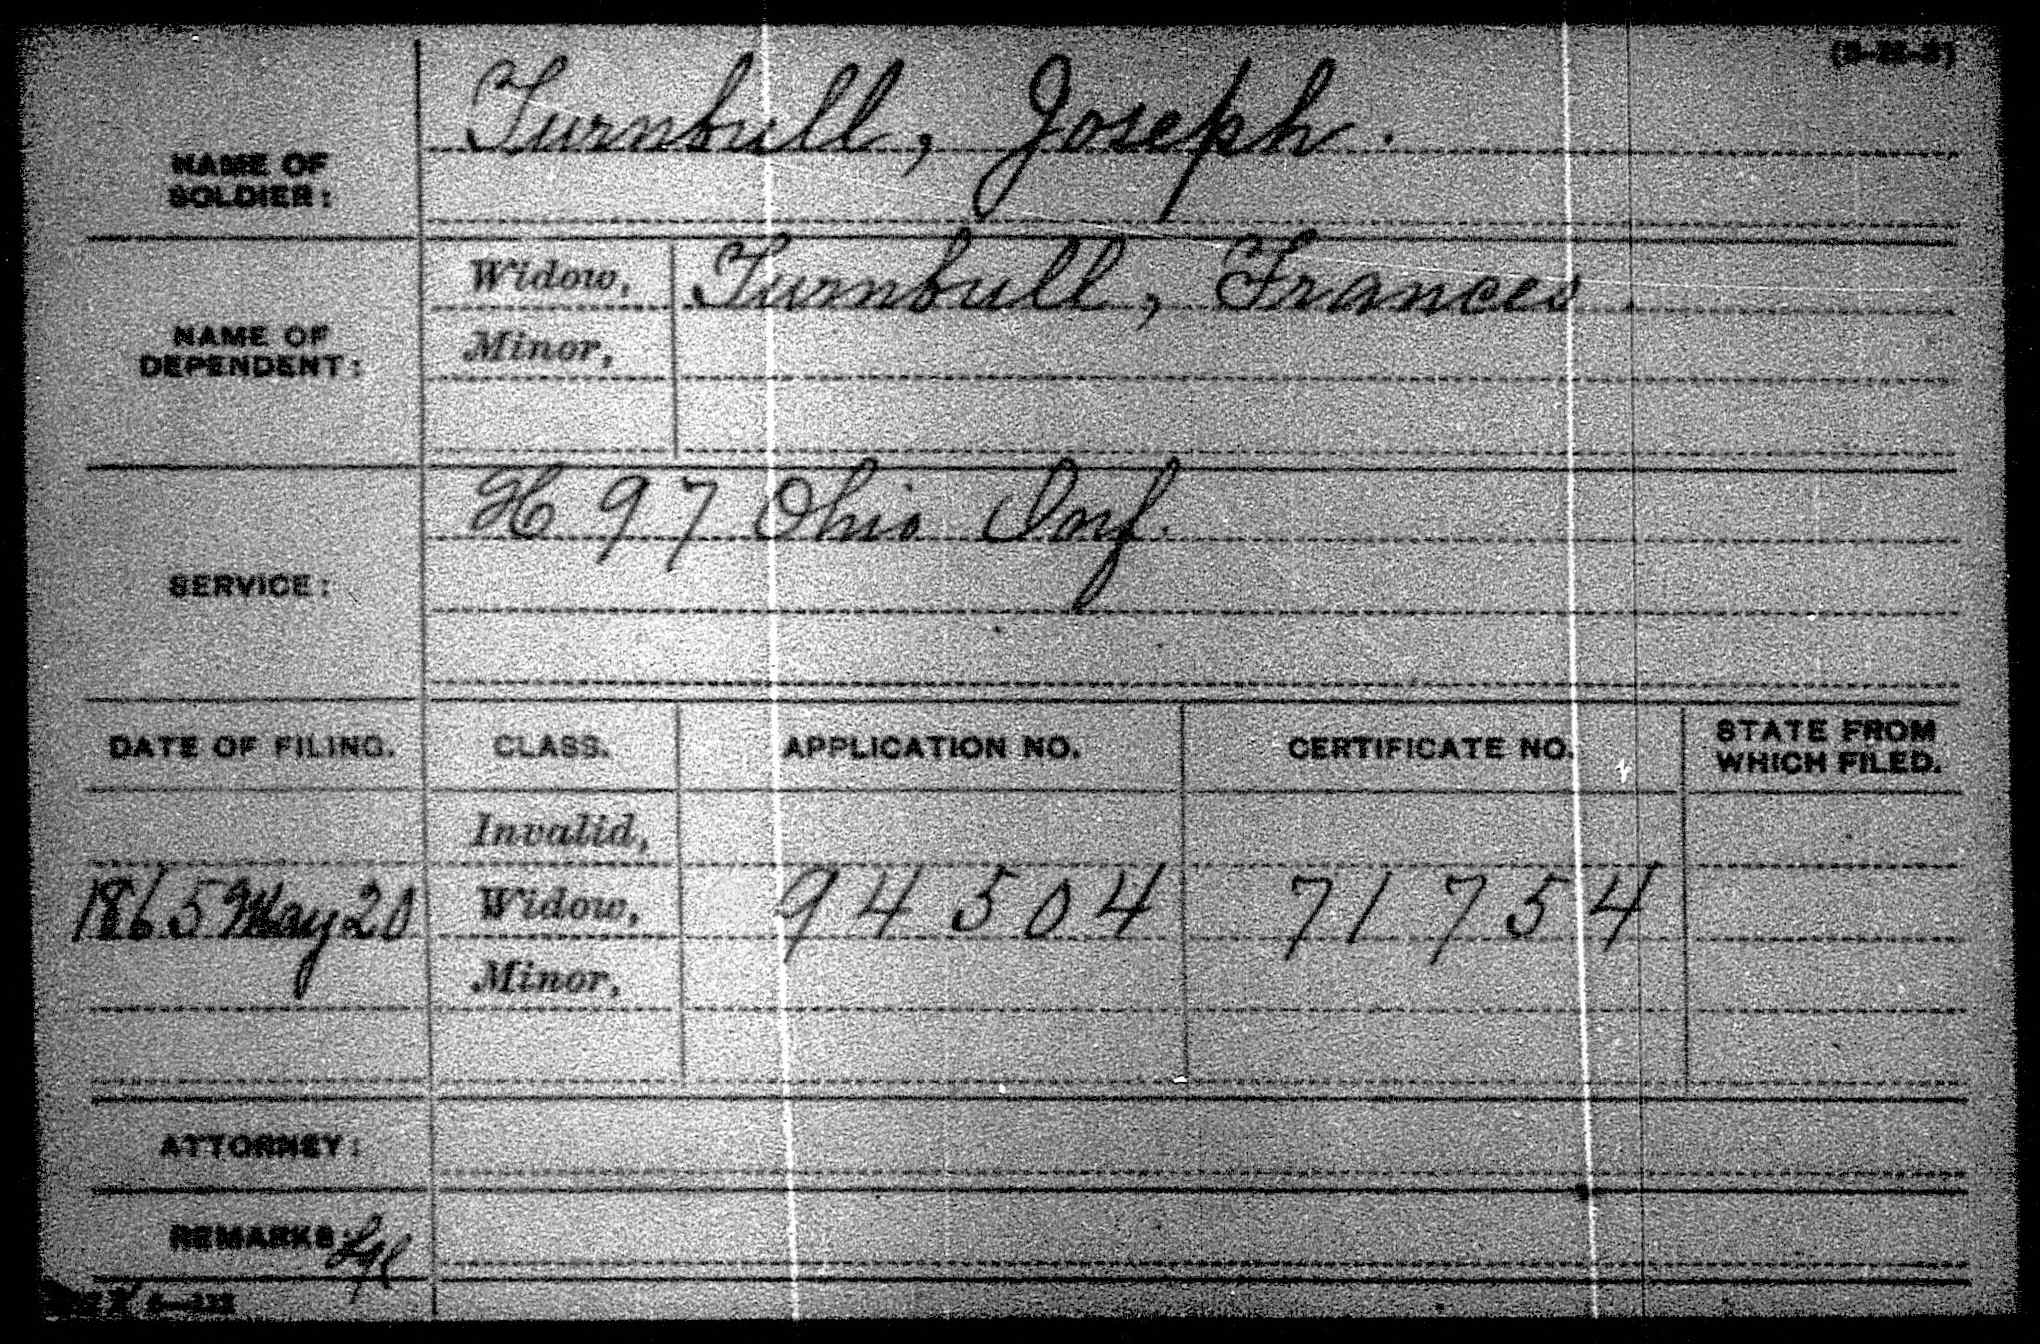 Turnbull, Joseph.
NAME OF
SOLDIER:
Widow, Turnbull, Frances.
Minor,
NAME OF
DEPENDENT:
H 97 Ohio Inf.
SERVICE:
DATE OF FILING. CLASS. APPLICATION NO. CERTIFICATE NO. STATE FROM
WHICH FILED.
Invalid,
1865 May 20 Widow, 94504 71754
Minor,
ATTORNEY:
REMARKS: